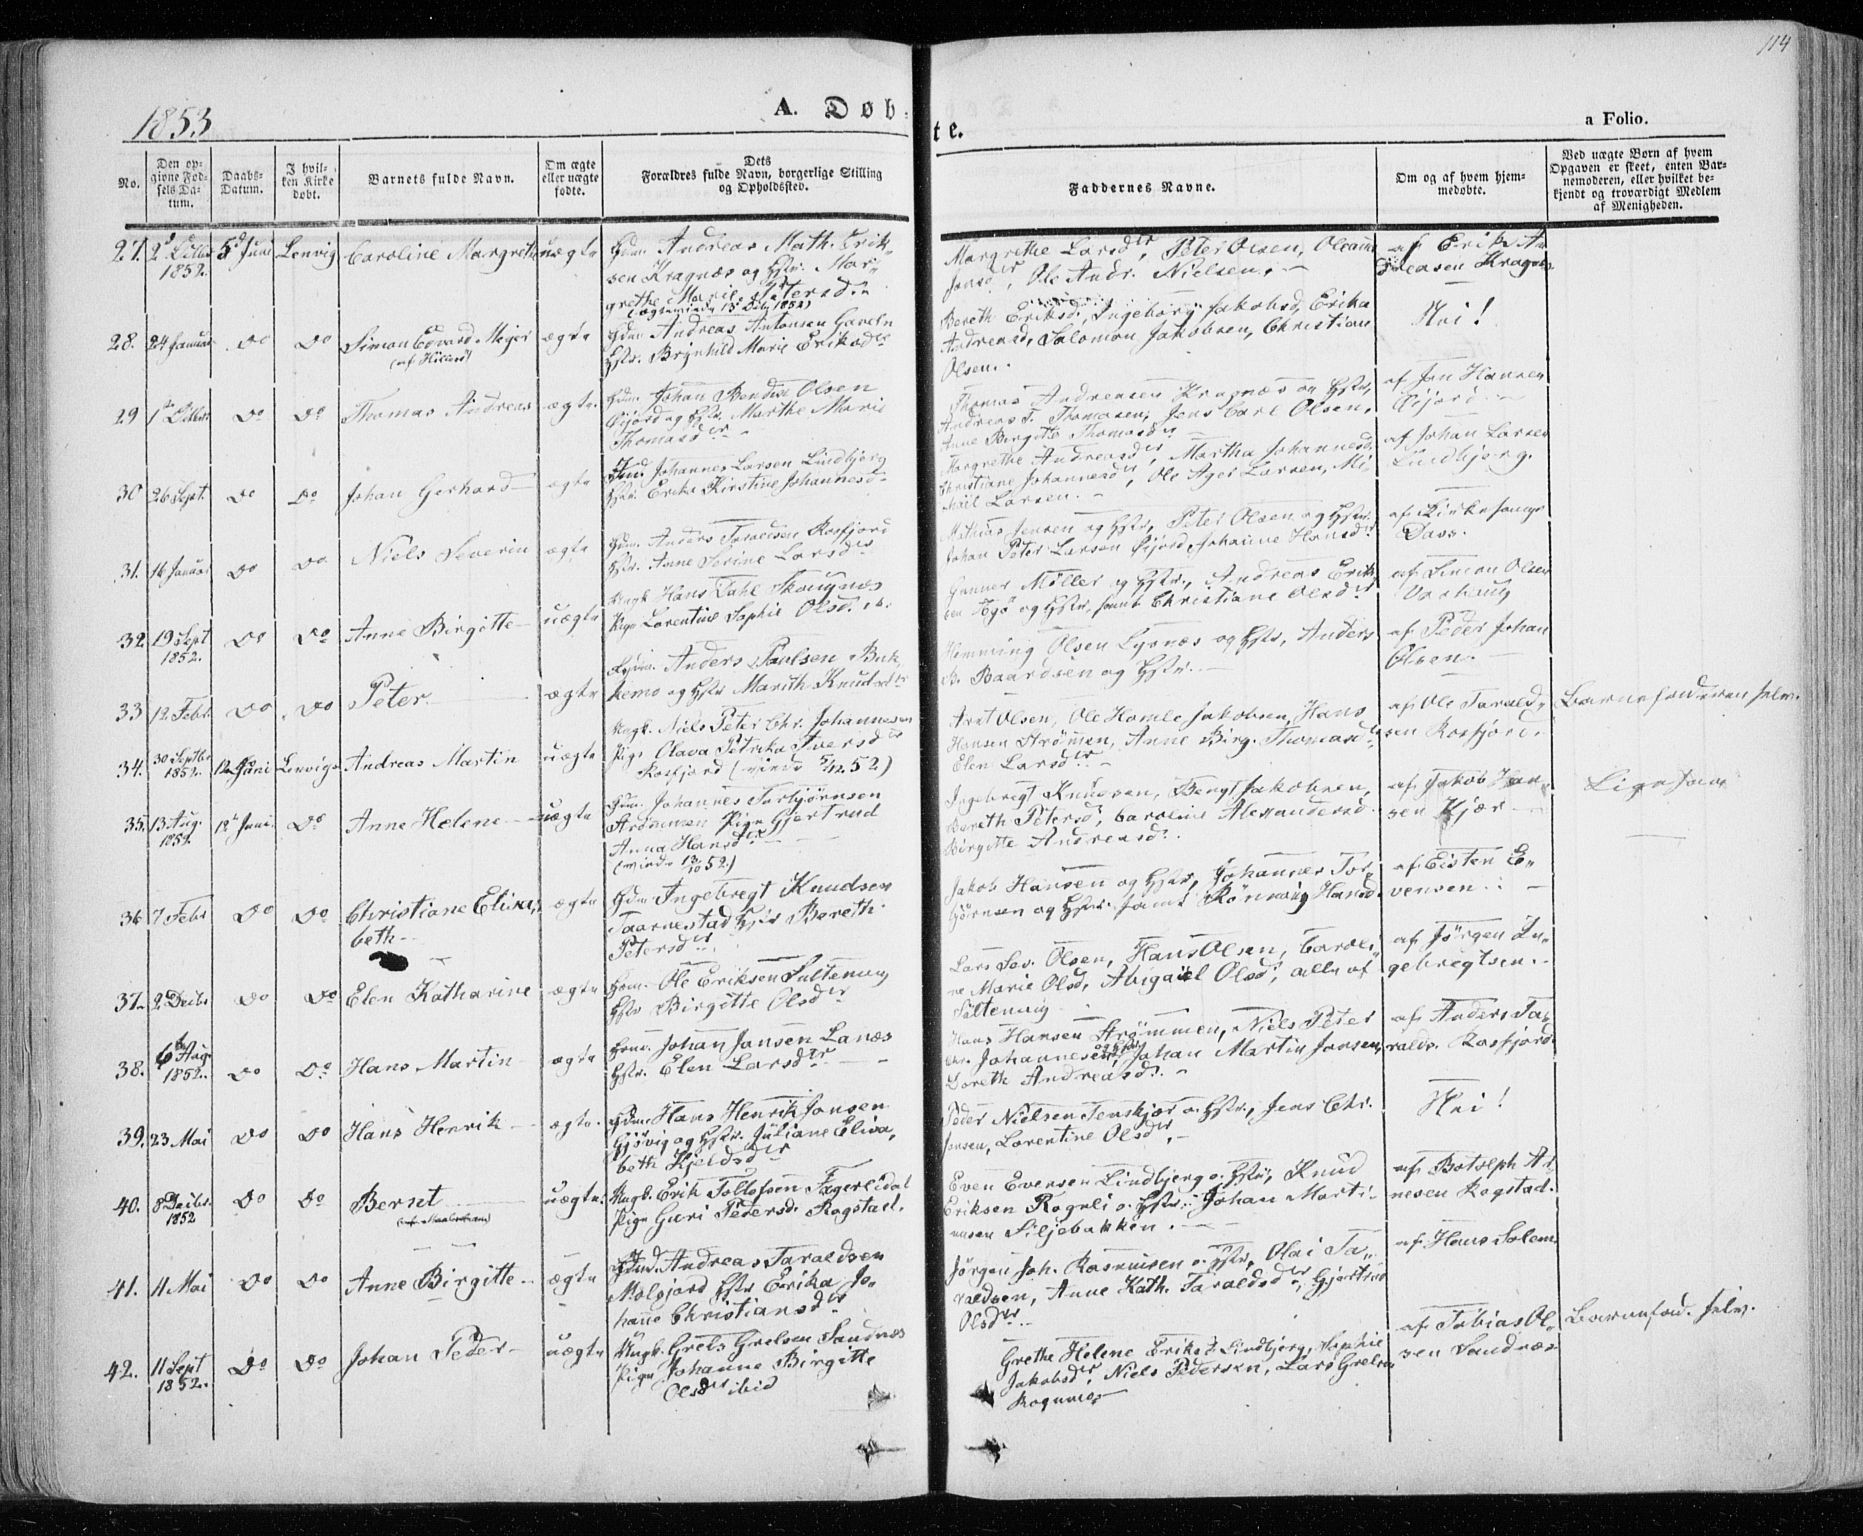 114
1853
A. Døb-
te.
a Folio.
No.
Den op-
givne Fød-
sels Da-
tum.
Daabs-
Datum.
I hvil-
ken Kirke
døbt.
Barnets fulde Navn.
Om ægte
eller uægte
fødte.
Dets
Forældres fulde Navn, borgerlige Stilling
og Opholdssted.
Faddernes Navne.
Om og af hvem hjem-
medøbte.
Ved uægte Børn af hvem
Opgaven er skeet, enten Bar-
nemoderen, eller hvilket be-
kjendt og troværdigt Medlem
af Menigheden.
27. 1852. 5 Juni Lenvig Caroline Margrethe uægte
Andreas Math. Erik-
sen Kragnæs og Hstr. Mar-
grethe Marie Petersd.
Margrethe Larsdr, Peter Olsen, Oleanna
Jensdr, Ole Andr. Nielsen.
af Erik An-
dreasen Kragnæs
28. 24 Januar Do Do Simon Edvard Mejer ægte
Gdm. Andreas Antonsen
Hstr. Brynhild Marie Eriksdr
Bereth Eriksd, Ingeborg Jakobsd, Erika
Andreasd, Salomon Jakobsen, Christian
Olsen.
Nei!
29 Do Do Thomas Andreas ægte
Gdm. Johan Bendix Olsen
Gijord og Hstr. Marthe Marie
Thomasdr
Thomas Andreasen Kragnæs og Hstr,
Andreas T. Thomasen, Jens Carl Olsen,
Anne Birgitte Thomasdr
af Jon Hansen
30 26 Sept. Do Do Johan Gerhard ægte
Johannes Larsen Lindbjerg
Hstr. Erika Kirstine Johannesd
Margrethe Andreasdr, Martha Johannesd,
Christiane Johannesdr, Ole Ager Larsen, Mi-
kaël Larsen.
af Johan Larsen
Lindbjerg.
31. 16 Januar Do Do Niels Severin ægte
Gdm. Anders Taraldsen Rossfjord
Hstr. Anne Serine Larsdr
Mathias Jensen og Hstr, Peter Olsen og Hstr.
Johan Peter Larsen Gijord, Johanne Hansdr
af Kirkesanger
Dass.
32. 19 Sept 1852. Do Do Anne Birgitte uægte
Ungk. Hans Dahl Skougnæs
Pige Lorentine Sophie Olsdr ib.
Gunner Møller og Hstr., Andreas Erik-
sen og Hstr, samt Christiane Olsdr
af Simon Olsen
33 12 Febr. Do Do Peter ægte
Anders Paulsen Buk-
kemo og Hstr Marith Knudsdr
Hemming Olsen Lysnæs og Hstr, Anders
B. Baardsen og Hstr.
af Peder Johan
Olsen.
34. 30 Septbr 1852. 12 Juni Lenvig Andreas Martin uægte
Ungk. Niels Peter Chr. Johannesen
Pige Olava Petrika Iversdr
Rosfjord ( 5/12 52.)
Arnt Olsen, Ole Homle Jakobsen, Hans
Hansen Strømmen, Anne Birg. Thomasd,
Elen Larsdr
af Ole Tarald-
sen Rosfjord.
Barnefaderen selv.
35. 13 Aug. 1852. 12 Juni Do Anne Helene uægte
Gdm. Johannes Torbjørnsen
Strømmen Pige Gjertrud
Anna Hansdr
( 13/10 52.)
Ingebregt Knudsen, Bengt Jakobsen,
Bereth Petersd, Caroline Alexandersd.
Birgitte Andreasd.
af Jakob Han-
sen Kjær
Ligesaa
36 7 Febr Do Do Christiane Elisa-
beth ægte
Gdm Ingebregt Knudsen
Taarnestad Hstr Bereth
Petersdr
Jakob Hansen og Hstr, Johannes Tor-
bjørnsen og Hstr. samt Rønnaug Hansd.
af Eisten E-
vensen.
37. 2 Decbr Do Do Elen Katharine ægte
Gdm. Ole Eriksen Sultenvig
Hstr Birgitte Olsdr
Lars Sev. Olsen, Hans Olsen, Caroli-
ne Marie Olsd, Abigaiel Olsd, alle af
Sultenvig
af Jørgen In-
gebregtsen.
38. 6 Aug. 1852. Do Do Hans Martin ægte
Johan Jansen Lanæs
Hstr. Elen Larsdr
Hans Hansen Strømmen, Niels Peter
Chr. Johannesen og Hstr, Johan Martin Jansen,
Doreth Andreasd.
af Anders Ta-
ralds. Rosfjord
39. 23 Mai Do Do Hans Henrik ægte
Gdm. Hans Henrik Jonsen
Gjøvig og Hstr. Juliane Elisa-
beth Kjeldsdr
Peder Nielsen Tenskjær o. Hstr., Jens Chr.
Jensen, Lorentine Olsdr.
Nei!
40. 8 Decbr. 1852 Do Do Bernt uægte
Ungk. Erik Tollefsen Fagerlidal
Pige Guri Pedersd. Rogstad.
Even Evensen Lindbjerg o. Hstr, Knud
Eriksen Rognli o. Hstr, Johan Marti-
nusen Siljebakken.
af Botolph Ar-
nesen Rogstad.
41. 11 Mai Do Do Anne Birgitte ægte
Andreas Taraldsen
Målsjord Hstr Erika Jo-
hanne Christiansdr
Jørgen Joh. Rasmusen o. Hstr, Olai Ta-
raldsen, Anne Kath. Taraldsdr, Gjertrud
Olsdr
af Hans Solem
42. 11 Sept 1852. Do Do Johan Peder uægte
Ungk. Grels Grelsen Sandnæs
Pige Johanne Birgitte
Olsdr ibid
Grethe Helene Eriksd Lindbjerg, Sophie
Jakobsdr, Niels Pedersen, Lars Grelsen
Rognmo
af Tobias Ol-
sen Sandnæs
Barnefad. selv.